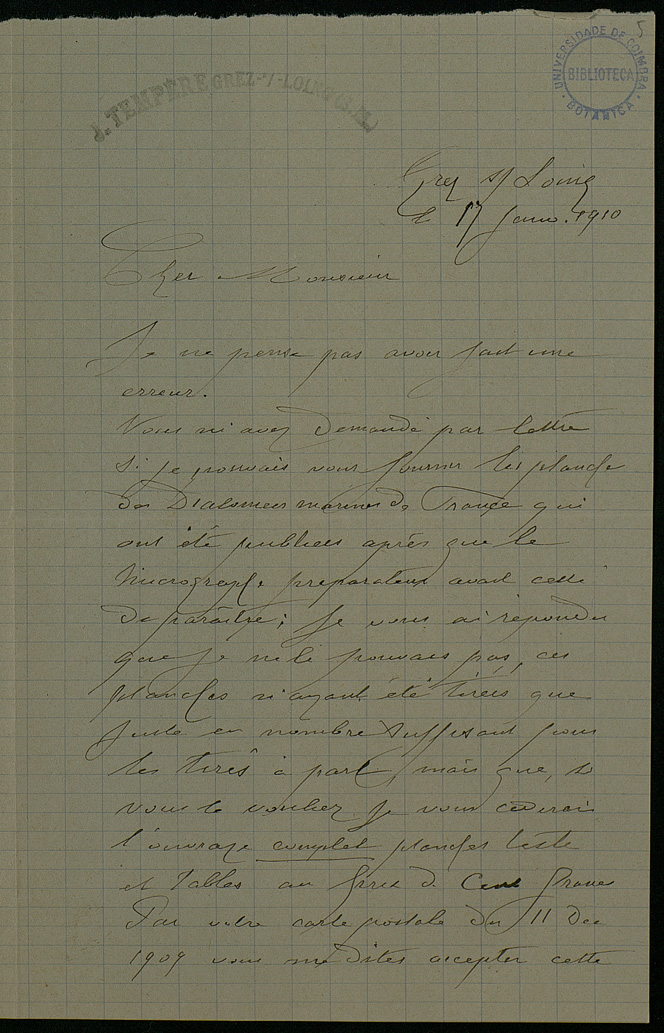 5
UNIVERSIDADE DE COIMBRA
BIBLIOTECA
BOTANICA
J. TEMPÈRE GREZ-s/-LOING (S.-M.)
Grez s/ Loing
le 17 Janv. 1910
Cher Monsieur
Je ne pense pas avoir fait une
erreur.
Vous m'avez demandé par lettre
si je pouvais vous fournir les planches
des Diatomées marines de France qui
ont été publiées après que le
Micrographe préparateur avait cessé
de paraître; Je vous ai répondu
que je ne le pouvais pas, ces
planches n'ayant été tirées que
juste en nombre suffisant pour
les tirés à part, mais que, si
vous le vouliez je vous cèderais
l'ouvrage complet planches texte
et Tables au prix de Cent Francs
Par votre carte postale du 11 Dec
1909 vous me dites accepter cette